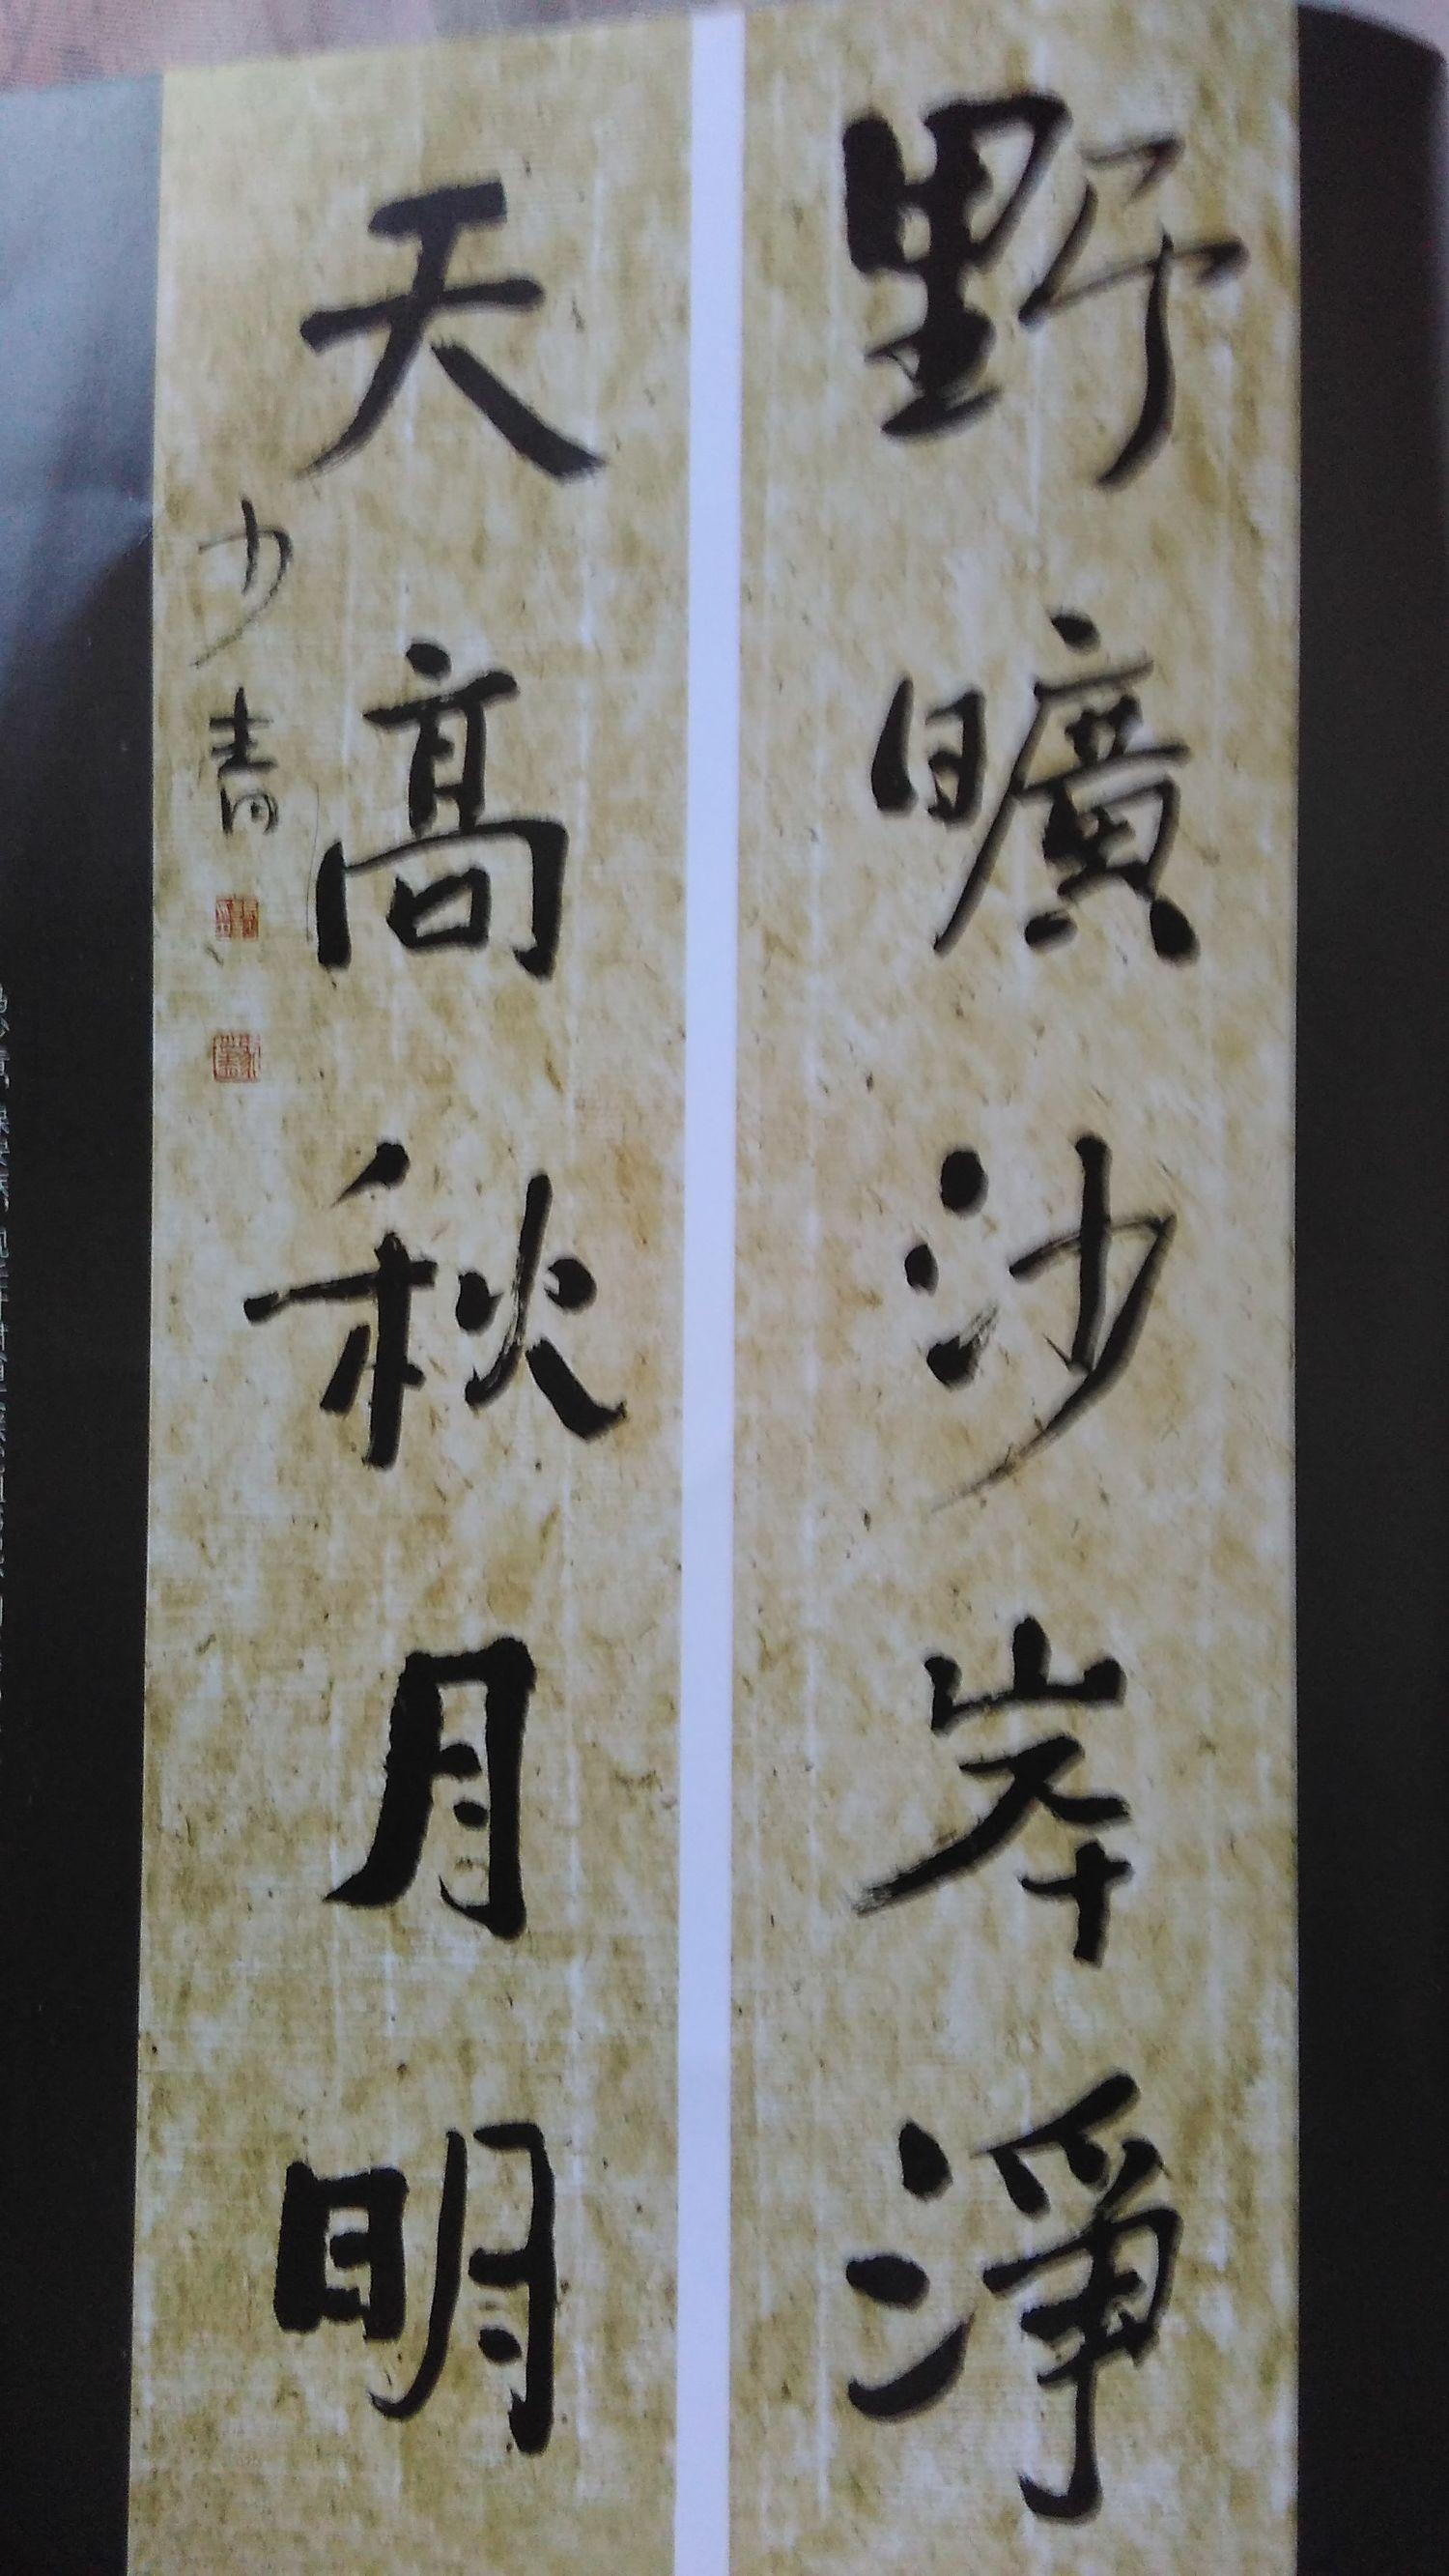 野曠沙岸淨
天高秋月明
少青